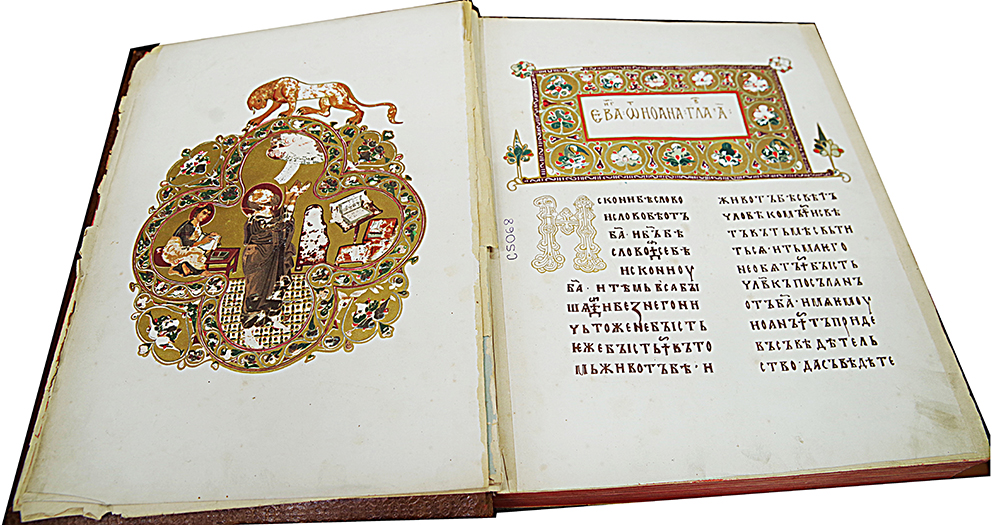 ЄВ҃А ѾИОАНА ГЛА А҃
CS068
ИСКОНИБѢСЛОВО
ИСЛОВОБѢОТЪ
Б҃АИБ҃ЪБѢ
СЛОВОСЕБѢ
ИСКОНИОУ
Б҃А·ИТѢМЬВСꙖБЫ
ШѦИБЕЗНЕГОНИ
ЧЬТОЖЕНЕБЫСТЬ
ѤЖЕБЫСТЬВЪТО
МЬЖИВОТЪБѢ·И
ЖИВОТЪБѢСВѢТЪ
ЧЛОВѢКОМЪИСВѢ
ТЪВЪТЬМѢСВЬТИ
ТЬСѦ·ИТЬМАѤГО
НЕОБѦТЪБЫСТЬ
ЧЛВ҃КЪПОСЪЛАНЪ
ОТЪБ҃А·ИМѦѤМОУ
ИОАНЪТЪПРИДЕ
ВЪСЪВѢДѢТЕЛЬ
СТВО·ДАСЪВѢДѢТЕ